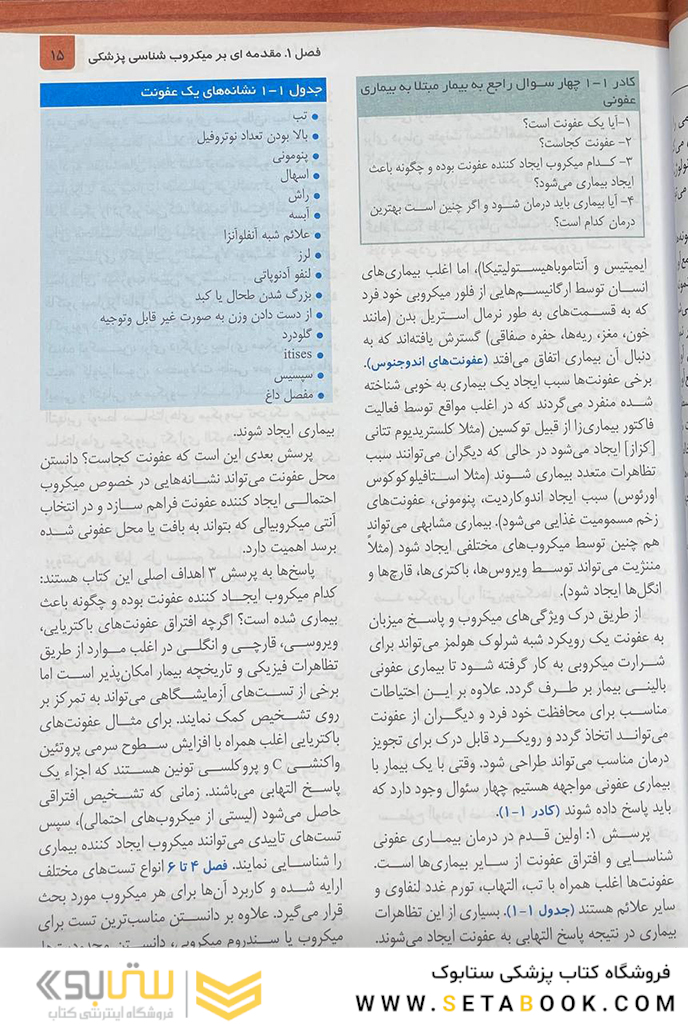 فصل ۱. مقدمه ای بر میکروب شناسی پزشکی
۱۵
کادر ۱-۱ چهار سوال راجع به بیمار مبتلا به بیماری
عفونی
۱-آیا یک عفونت است؟
۲- عفونت کجاست؟
۳- کدام میکروب ایجاد کننده عفونت بوده و چگونه باعث
ایجاد بیماری می‌شود؟
۴- آیا بیماری باید درمان شود و اگر چنین است بهترین
درمان کدام است؟
ایمیتیس و آنتاموباهیستولیتیکا)، اما اغلب بیماری‌های
انسان توسط ارگانیسم‌هایی از فلور میکروبی خود فرد
که به قسمت‌های به طور نرمال استریل بدن (مانند
خون، مغز، ریه‌ها، حفره صفاقی) گسترش یافته‌اند که به
دنبال آن بیماری اتفاق می‌افتد (عفونت‌های اندوجنوس).
برخی عفونت‌ها سبب ایجاد یک بیماری به خوبی شناخته
شده منفرد می‌گردند که در اغلب مواقع توسط فعالیت
فاکتور بیماری‌زا از قبیل توکسین (مثلا کلستریدیوم تتانی
[کزاز] ایجاد می‌شود در حالی که دیگران می‌توانند سبب
تظاهرات متعدد بیماری شوند (مثلا استافیلوکوکوس
اورئوس) سبب ایجاد اندوکاردیت، پنومونی، عفونت‌های
زخم مسمومیت غذایی می‌شود). بیماری مشابهی می‌تواند
هم چنین توسط میکروب‌های مختلفی ایجاد شود (مثلاً
مننژیت می‌تواند توسط ویروس‌ها، باکتری‌ها، قارچ‌ها و
انگل‌ها ایجاد شود).
از طریق درک ویژگی‌های میکروب و پاسخ میزبان
به عفونت یک رویکرد شبه شرلوک هولمز می‌تواند برای
شرارت میکروبی به کار گرفته شود تا بیماری عفونی
بالینی بیمار بر طرف گردد. علاوه بر این احتیاطات
مناسب برای محافظت خود فرد و دیگران از عفونت
می‌تواند اتخاذ گردد و رویکرد قابل درک برای تجویز
درمان مناسب می‌تواند طراحی شود. وقتی با یک بیمار با
بیماری عفونی مواجهه هستیم چهار سئوال وجود دارد که
باید پاسخ داده شوند (کادر ۱-۱).
پرسش ۱: اولین قدم در درمان بیماری عفونی
شناسایی و افتراق عفونت از سایر بیماری‌ها است.
عفونت‌ها اغلب همراه با تب، التهاب، تورم غدد لنفاوی و
سایر علائم هستند (جدول ۱-۱). بسیاری از این تظاهرات
بیماری در نتیجه پاسخ التهابی به عفونت ایجاد می‌شوند.
جدول ۱-۱ نشانه‌های یک عفونت
• تب
• بالا بودن تعداد نوتروفیل
• پنومونی
• اسهال
• راش
• آبسه
• علائم شبه آنفلوآنزا
• لرز
• لنفو آدنوپاتی
• بزرگ شدن طحال یا کبد
• از دست دادن وزن به صورت غیر قابل وتوجیه
• گلودرد
• itises
• سپسیس
• مفصل داغ
بیماری ایجاد شوند.
پرسش بعدی این است که عفونت کجاست؟ دانستن
محل عفونت می‌تواند نشانه‌هایی در خصوص میکروب
احتمالی ایجاد کننده عفونت فراهم سازد و در انتخاب
آنتی میکروبیالی که بتواند به بافت یا محل عفونی شده
برسد اهمیت دارد.
پاسخ‌ها به پرسش ۳ اهداف اصلی این کتاب هستند:
کدام میکروب ایجاد کننده عفونت بوده و چگونه باعث
بیماری شده است؟ اگرچه افتراق عفونت‌های باکتریایی،
ویروسی، قارچی و انگلی در اغلب موارد از طریق
تظاهرات فیزیکی و تاریخچه بیمار امکان‌پذیر است اما
برخی از تست‌های آزمایشگاهی می‌تواند به تمرکز بر
روی تشخیص کمک نمایند. برای مثال عفونت‌های
باکتریایی اغلب همراه با افزایش سطوح سرمی پروتئین
واکنشی C و پروکلسی تونین هستند که اجزاء یک
پاسخ التهابی می‌باشند. زمانی که تشخیص افتراقی
حاصل می‌شود (لیستی از میکروب‌های احتمالی)، سپس
تست‌های تاییدی می‌توانند میکروب ایجاد کننده بیماری
را شناسایی نمایند. فصل ۴ تا ۶ انواع تست‌های مختلف
ارایه شده و کاربرد آن‌ها برای هر میکروب مورد بحث
قرار می‌گیرد. علاوه بر دانستن مناسب‌ترین تست برای
میکروب یا سندروم میکروبی، دانستن محدودیت‌ها
فروشگاه کتاب پزشکی ستابوک
WWW.SETABOOK.COM
ستابوک
فروشگاه اینترنتی کتاب